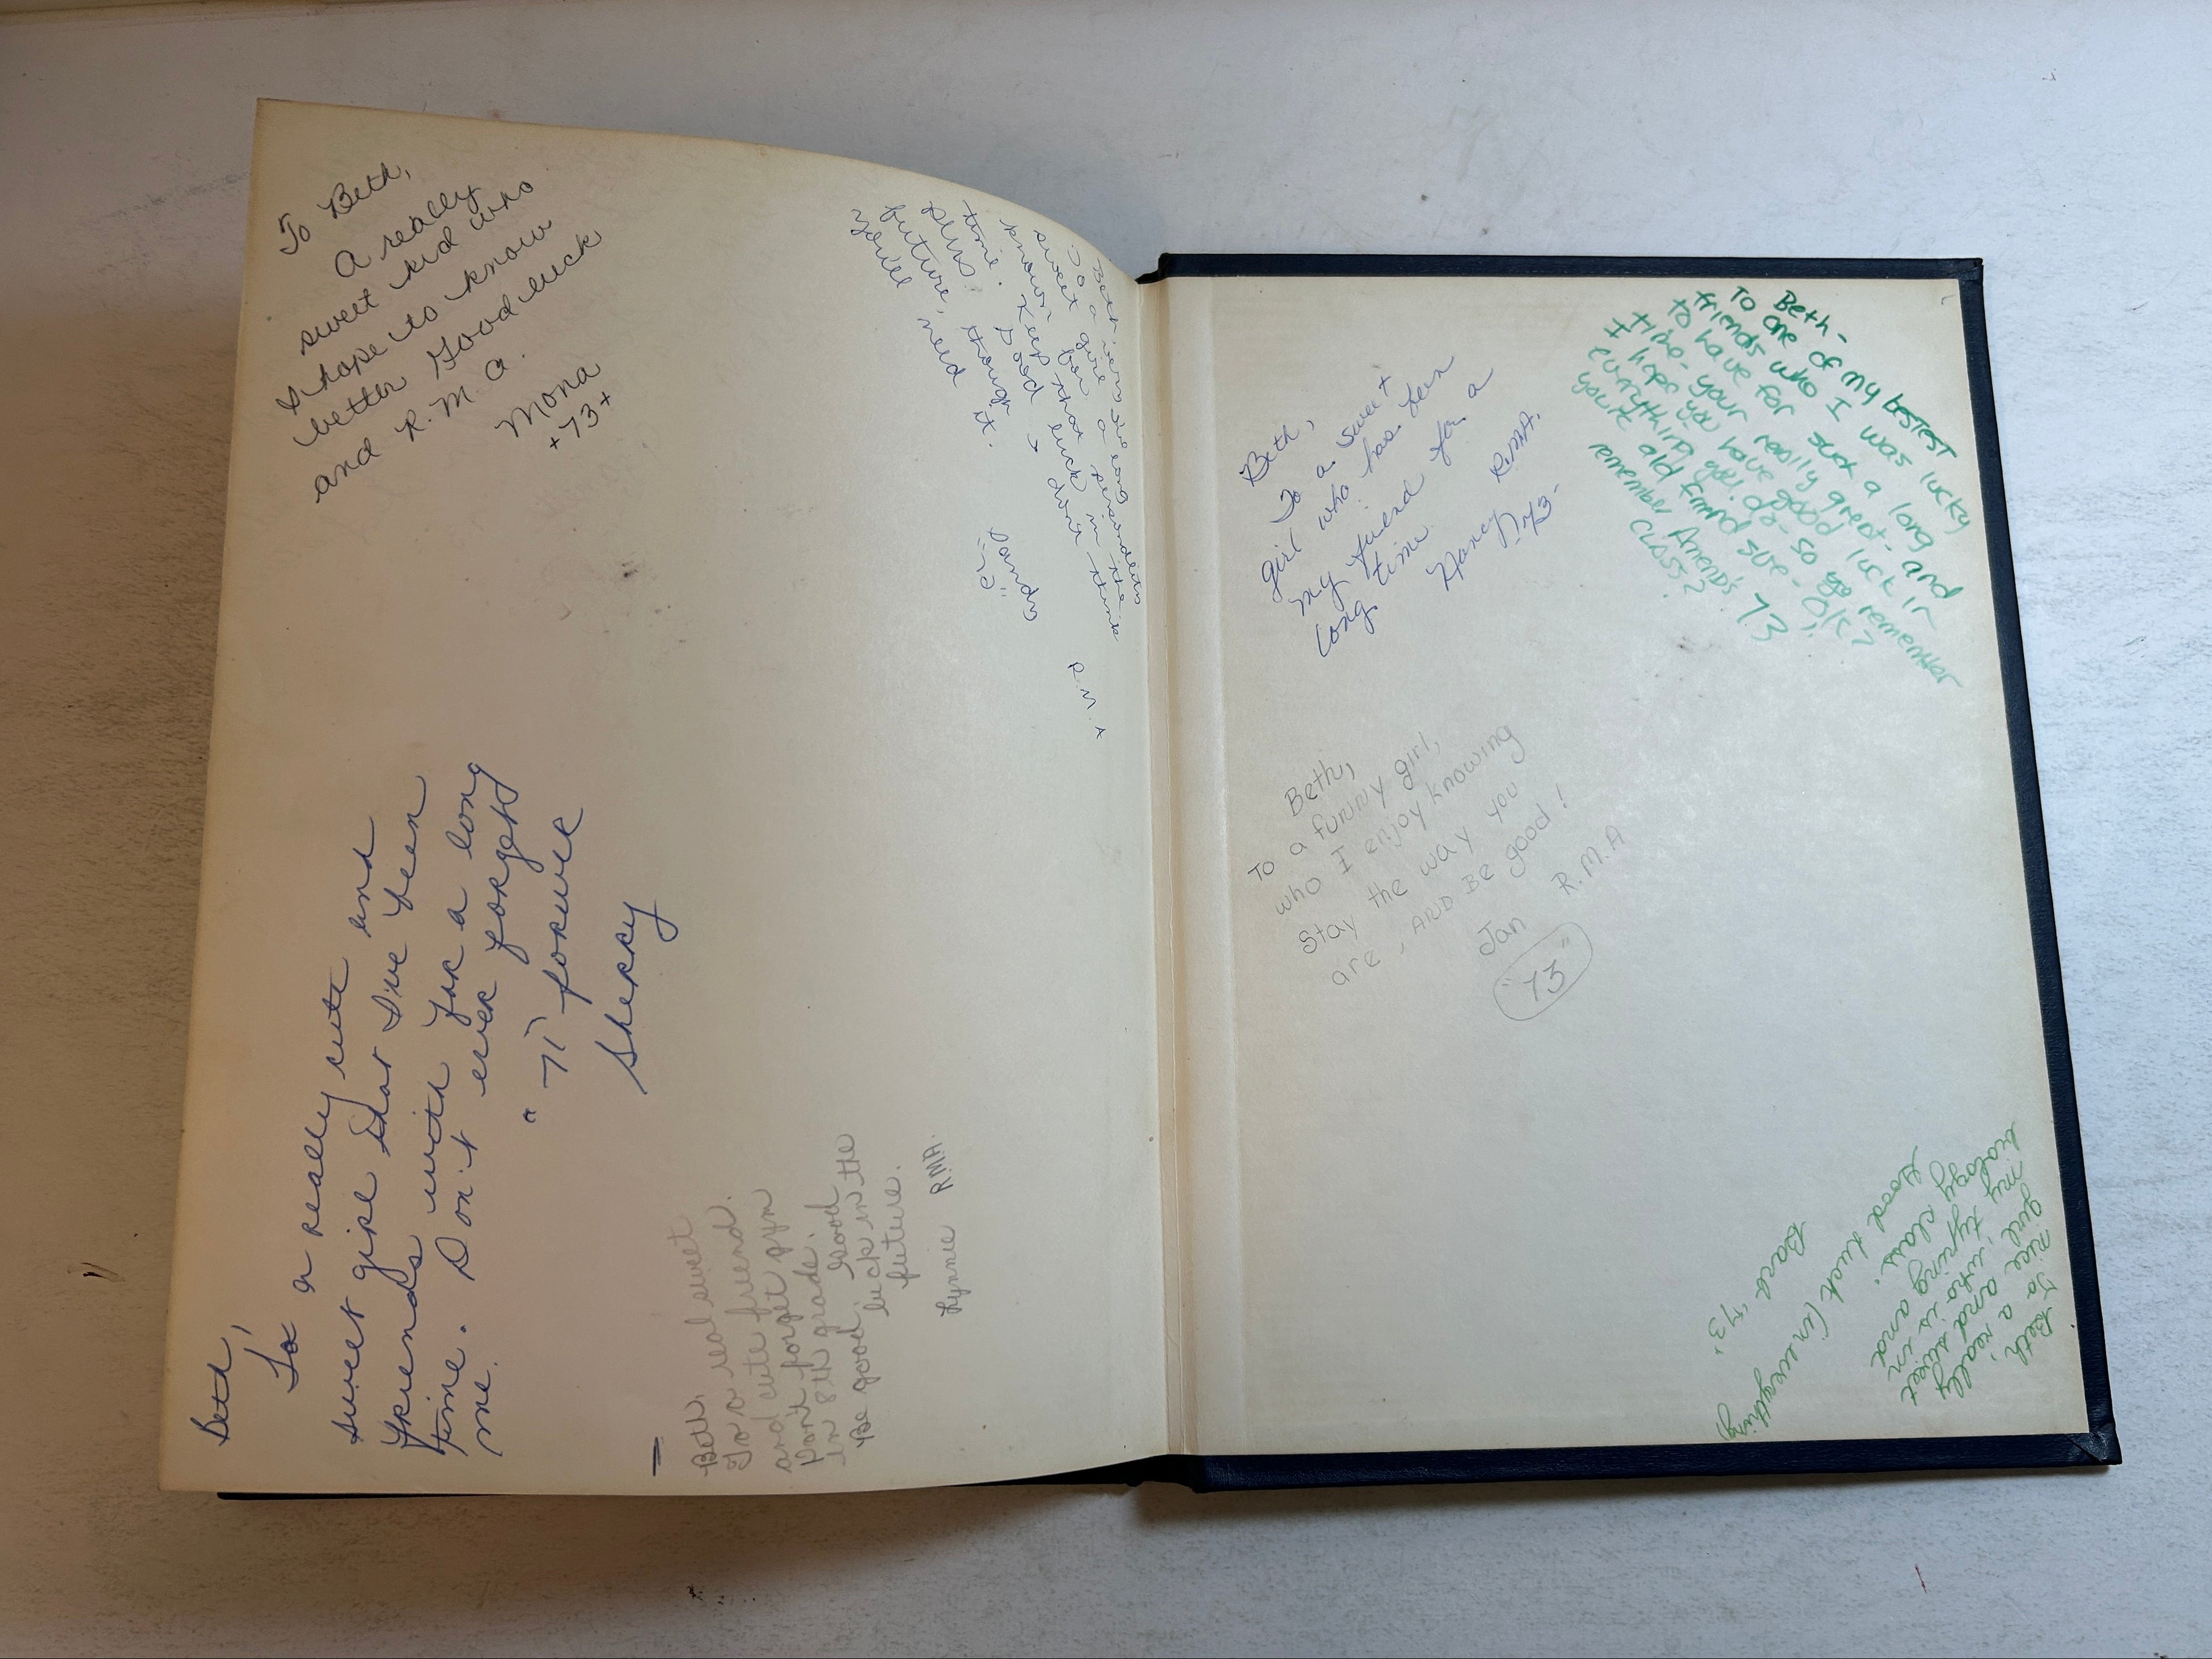 To Beth,
A really
sweet kid who
I hope to know
better Good luck
and R.M.A.
Mona
+73+
Beth,
To a very
sweet girl I've
known for a long
time. Keep
that luck in the
Good
future, though
you'll need it.
Sandy
R.M.A
Beth,
To a really cute and
sweet girl that I've been
friends with for a long
time. Don't ever forget
me.
"71" forever
Sherry
Beth,
To a real sweet
and cute friend.
Don't forget gym
in 8th grade.
Be good. Good
luck in the
future.
Lynnie R.M.A.
Beth,
To a sweet
girl who has been
my friend for a
long time
R.M.A.
Nancy
-73-
To Beth-
To one of my bestest
friends who I was lucky
to have for such a long
time- your really great- and
I hope you have good luck in
everything you do- so remember
your old friend sue- O.K?
remember Arend's 73
class?
Beth,
To a funny girl,
who I enjoy knowing
Stay the way you
are, AND BE good!
Jan R.M.A
"73"
Beth,
To a really
nice and sweet
girl who is in
my typing and
biology class.
Good luck (in everything)
Barb '73'